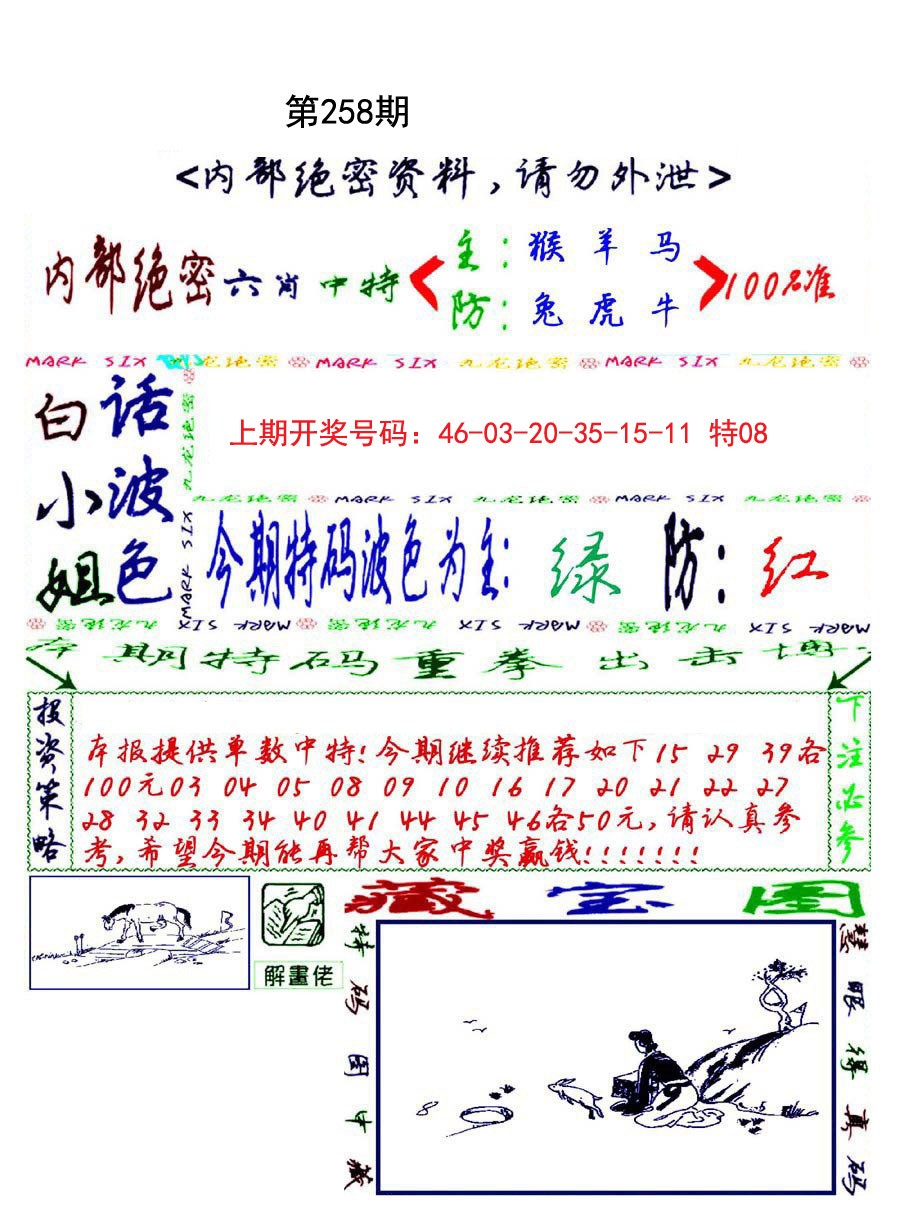 第258期
<内部绝密资料,请勿外泄>
内部绝密六肖中特
主:猴羊马
防:兔虎牛
100%准
MARK SIX 九龙绝密 MARK SIX 九龙绝密 MARK SIX 九龙绝密
白小姐
话波色
九龙绝密
MARK SIX
上期开奖号码：46-03-20-35-15-11 特08
九龙绝密 MARK SIX 九龙绝密 MARK SIX 九龙绝密
今期特码波色为主:绿 防:红
九龙绝密 MARK SIX 九龙绝密 MARK SIX 九龙绝密 MARK SIX
本期特码重拳出击博
投资策略
本报提供单数中特!今期继续推荐如下15 29 39各
100元03 04 05 08 09 10 16 17 20 21 22 27
28 32 33 34 40 41 44 45 46各50元,请认真参
考,希望今期能再帮大家中奖赢钱!!!!!!!
下注必参
解畫佬
藏宝图
特码图中藏
慧眼得真码